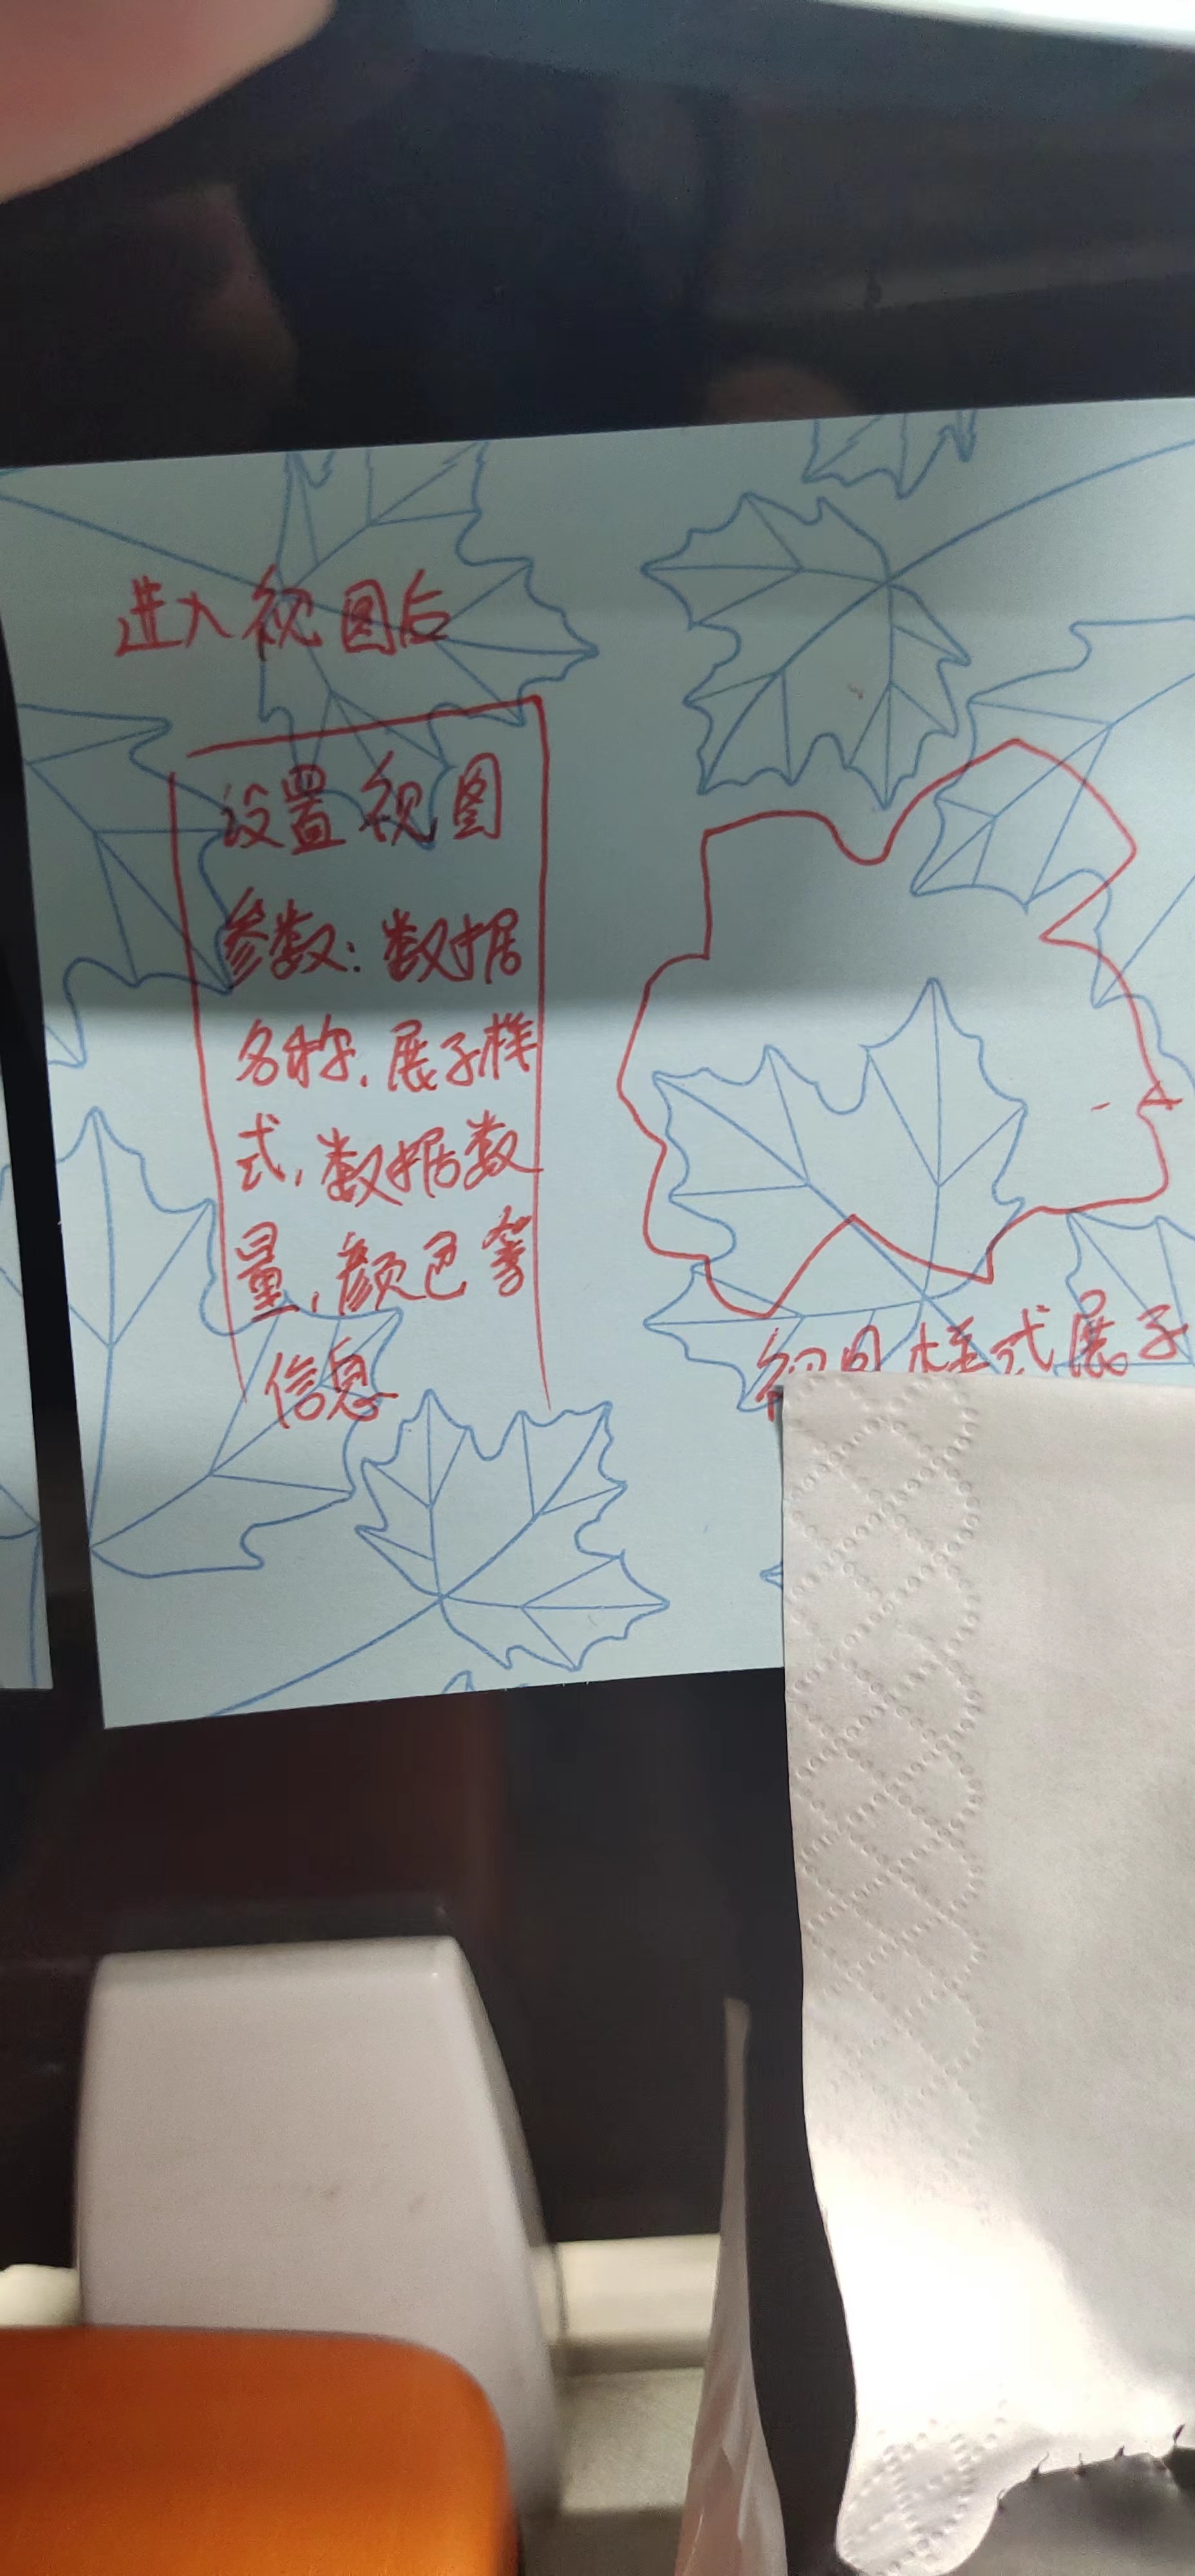 进入视图后
设置视图
参数：数据
名称，展子样
式，数据数
量，颜色等
信息
样式展子